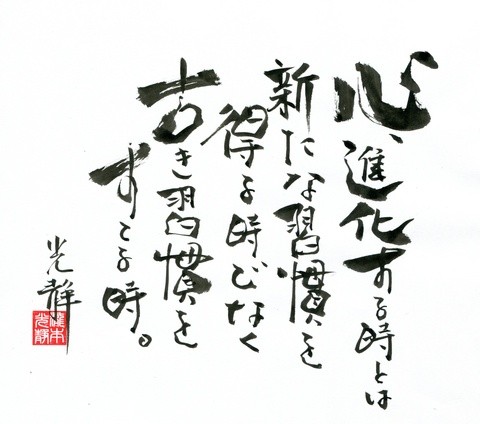 心、進化する時とは
新たな習慣を
得る時でなく
古き習慣を
すてる時。
光静